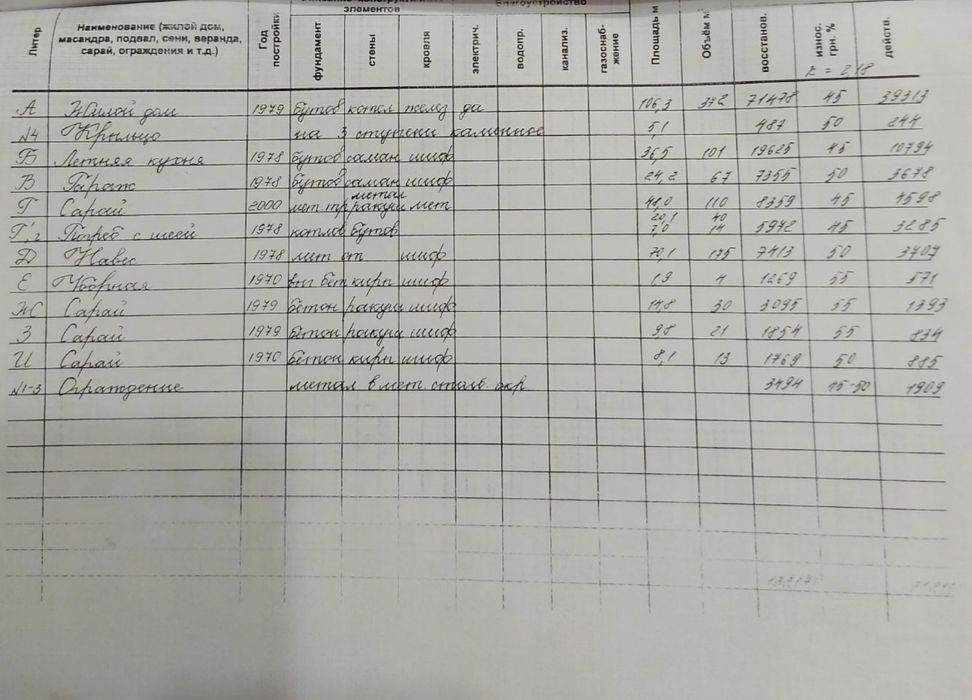 элементов Благоустройство
Литер Наименование (жилой дом, масандра, подвал, сени, веранда, сарай, ограждения и т.д.) Год постройки фундамент стены кровля электрич. водопр. канализ. газоснаб-жение Площадь м Объём м восстанов. износ. грн. % действ.
= 2,18
А Жилой дом 1979 бутов котел желез да 106,3 372 71478 45 39313
№4 Крыльцо на 3 ступени каменное 5,1 487 50 244
Б Летняя кухня 1978 бутов саман шиф 36,5 101 19625 45 10794
В Гараж 1978 бутов саман шиф 24,2 67 7355 50 3678
метал
Г Сарай 2000 мет тр ракуш мет 48,0 110 8359 45 4598
20,1 40
Г', г Погреб с шеей 1978 котлов бутов 7,0 14 5972 45 3285
Д Навес 1978 мет от шиф 70,1 175 7413 50 3707
Е Уборная 1970 выг бет кирп шиф 1,9 4 1269 55 571
Ж Сарай 1979 бетон ракуш шиф 14,8 30 3095 55 1393
З Сарай 1979 бетон ракуш шиф 9,8 21 1854 55 834
И Сарай 1970 бетон кирп шиф 8,1 13 1769 50 885
№1-3 Ограждение метал в мет. столб окр 3494 45-50 1909